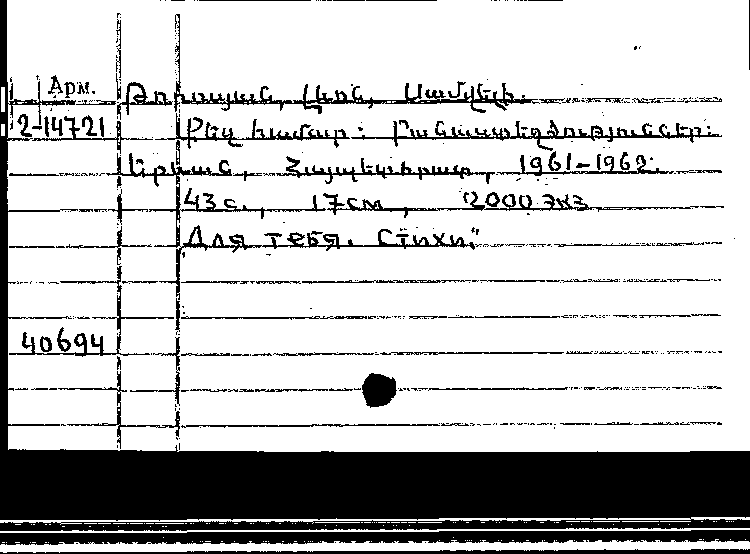 Арм.
Թորոսյան, Լևոն, Սամվելի.
2-14721 Քեզ համար: Բանաստեղծություններ:
Երևան, Հայպետհրատ, 1961-1962.
43 с., 17 см, 2000 экз
„Для тебя. Стихи."
40694